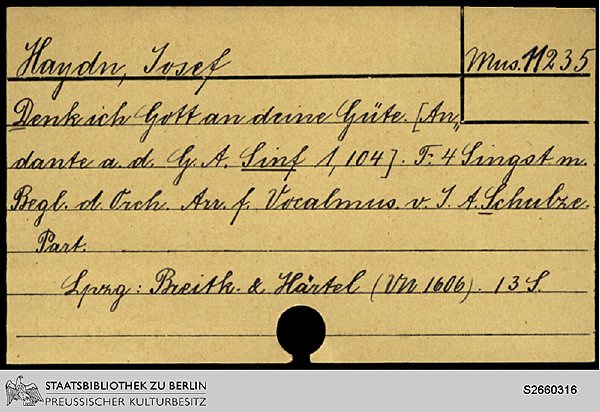 Haydn, Josef
Mus. 11235
Denk ich Gott an deine Güte. [An„
dante a. d. G. A. Sinf 1, 104]. F. 4 Singst. m.
Begl. d. Orch. Arr. f. Vocalmus. v. J. A. Schulze.
Part.
Lpzg: Breitk. & Härtel (VN 1606). 13 S.
STAATSBIBLIOTHEK ZU BERLIN
PREUSSISCHER KULTURBESITZ
S2660316